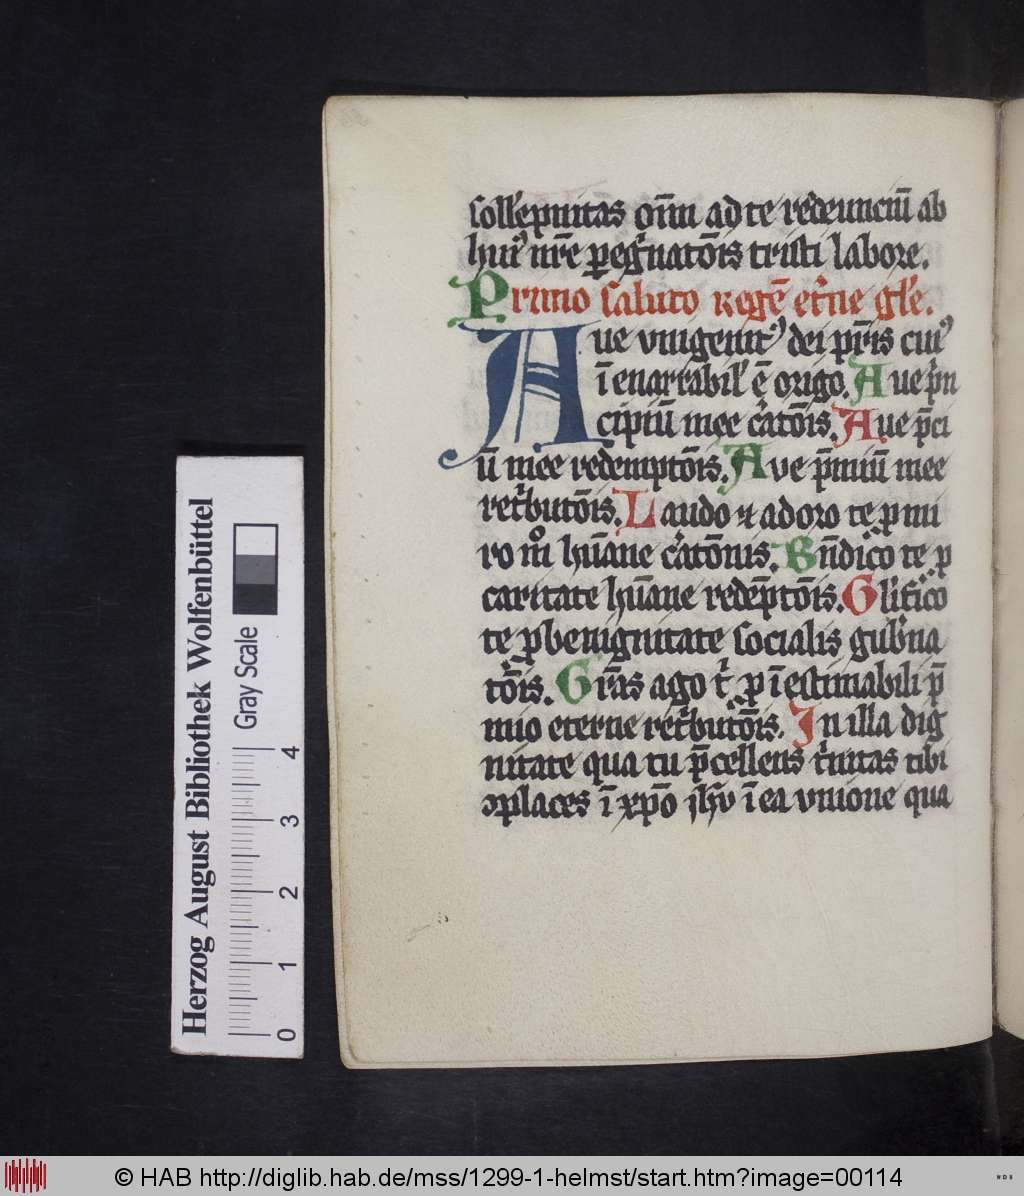 solle̅pnitas o̅m̅iu ad te rede̅unciu̅ ab
hui᷒ nr̅e ꝑeg̍nato̅is tristi labore.
Primo saluto Rege̅ et̍ne gl̅e.
Aue vnigenit᷒ dei pr̅is cui᷒
i̅enarrabil̛ e̅ origo. Aue p̍n
cipiu̅ mee c̍ato̅is. Aue p̅ci
u̅ mee redempto̅is. Ave p̅miu̅ mee
ret̍buto̅is. Laudo ⁊ adoro te ꝓ mi
ro mͦ hu̅ane c̍ato̅nis. Bn̅dico te ꝑ
caritate hu̅ane rede̅pto̅is. Gl̍ifico
te ꝓ benignitate socialis gub̍na
to̅is. Gr̅as ago t̍ ꝑ i̅estimabili p̅
mio eterne ret̍buto̅is. In illa dig
nitate qua tu p̅cellens t̍nitas tibi
ꝯplaces i̅ xp̅o ih̅v i̅ ea vnione qua
Herzog August Bibliothek Wolfenbüttel
Gray Scale
0 1 2 3 4
© HAB http://diglib.hab.de/mss/1299-1-helmst/start.htm?image=00114